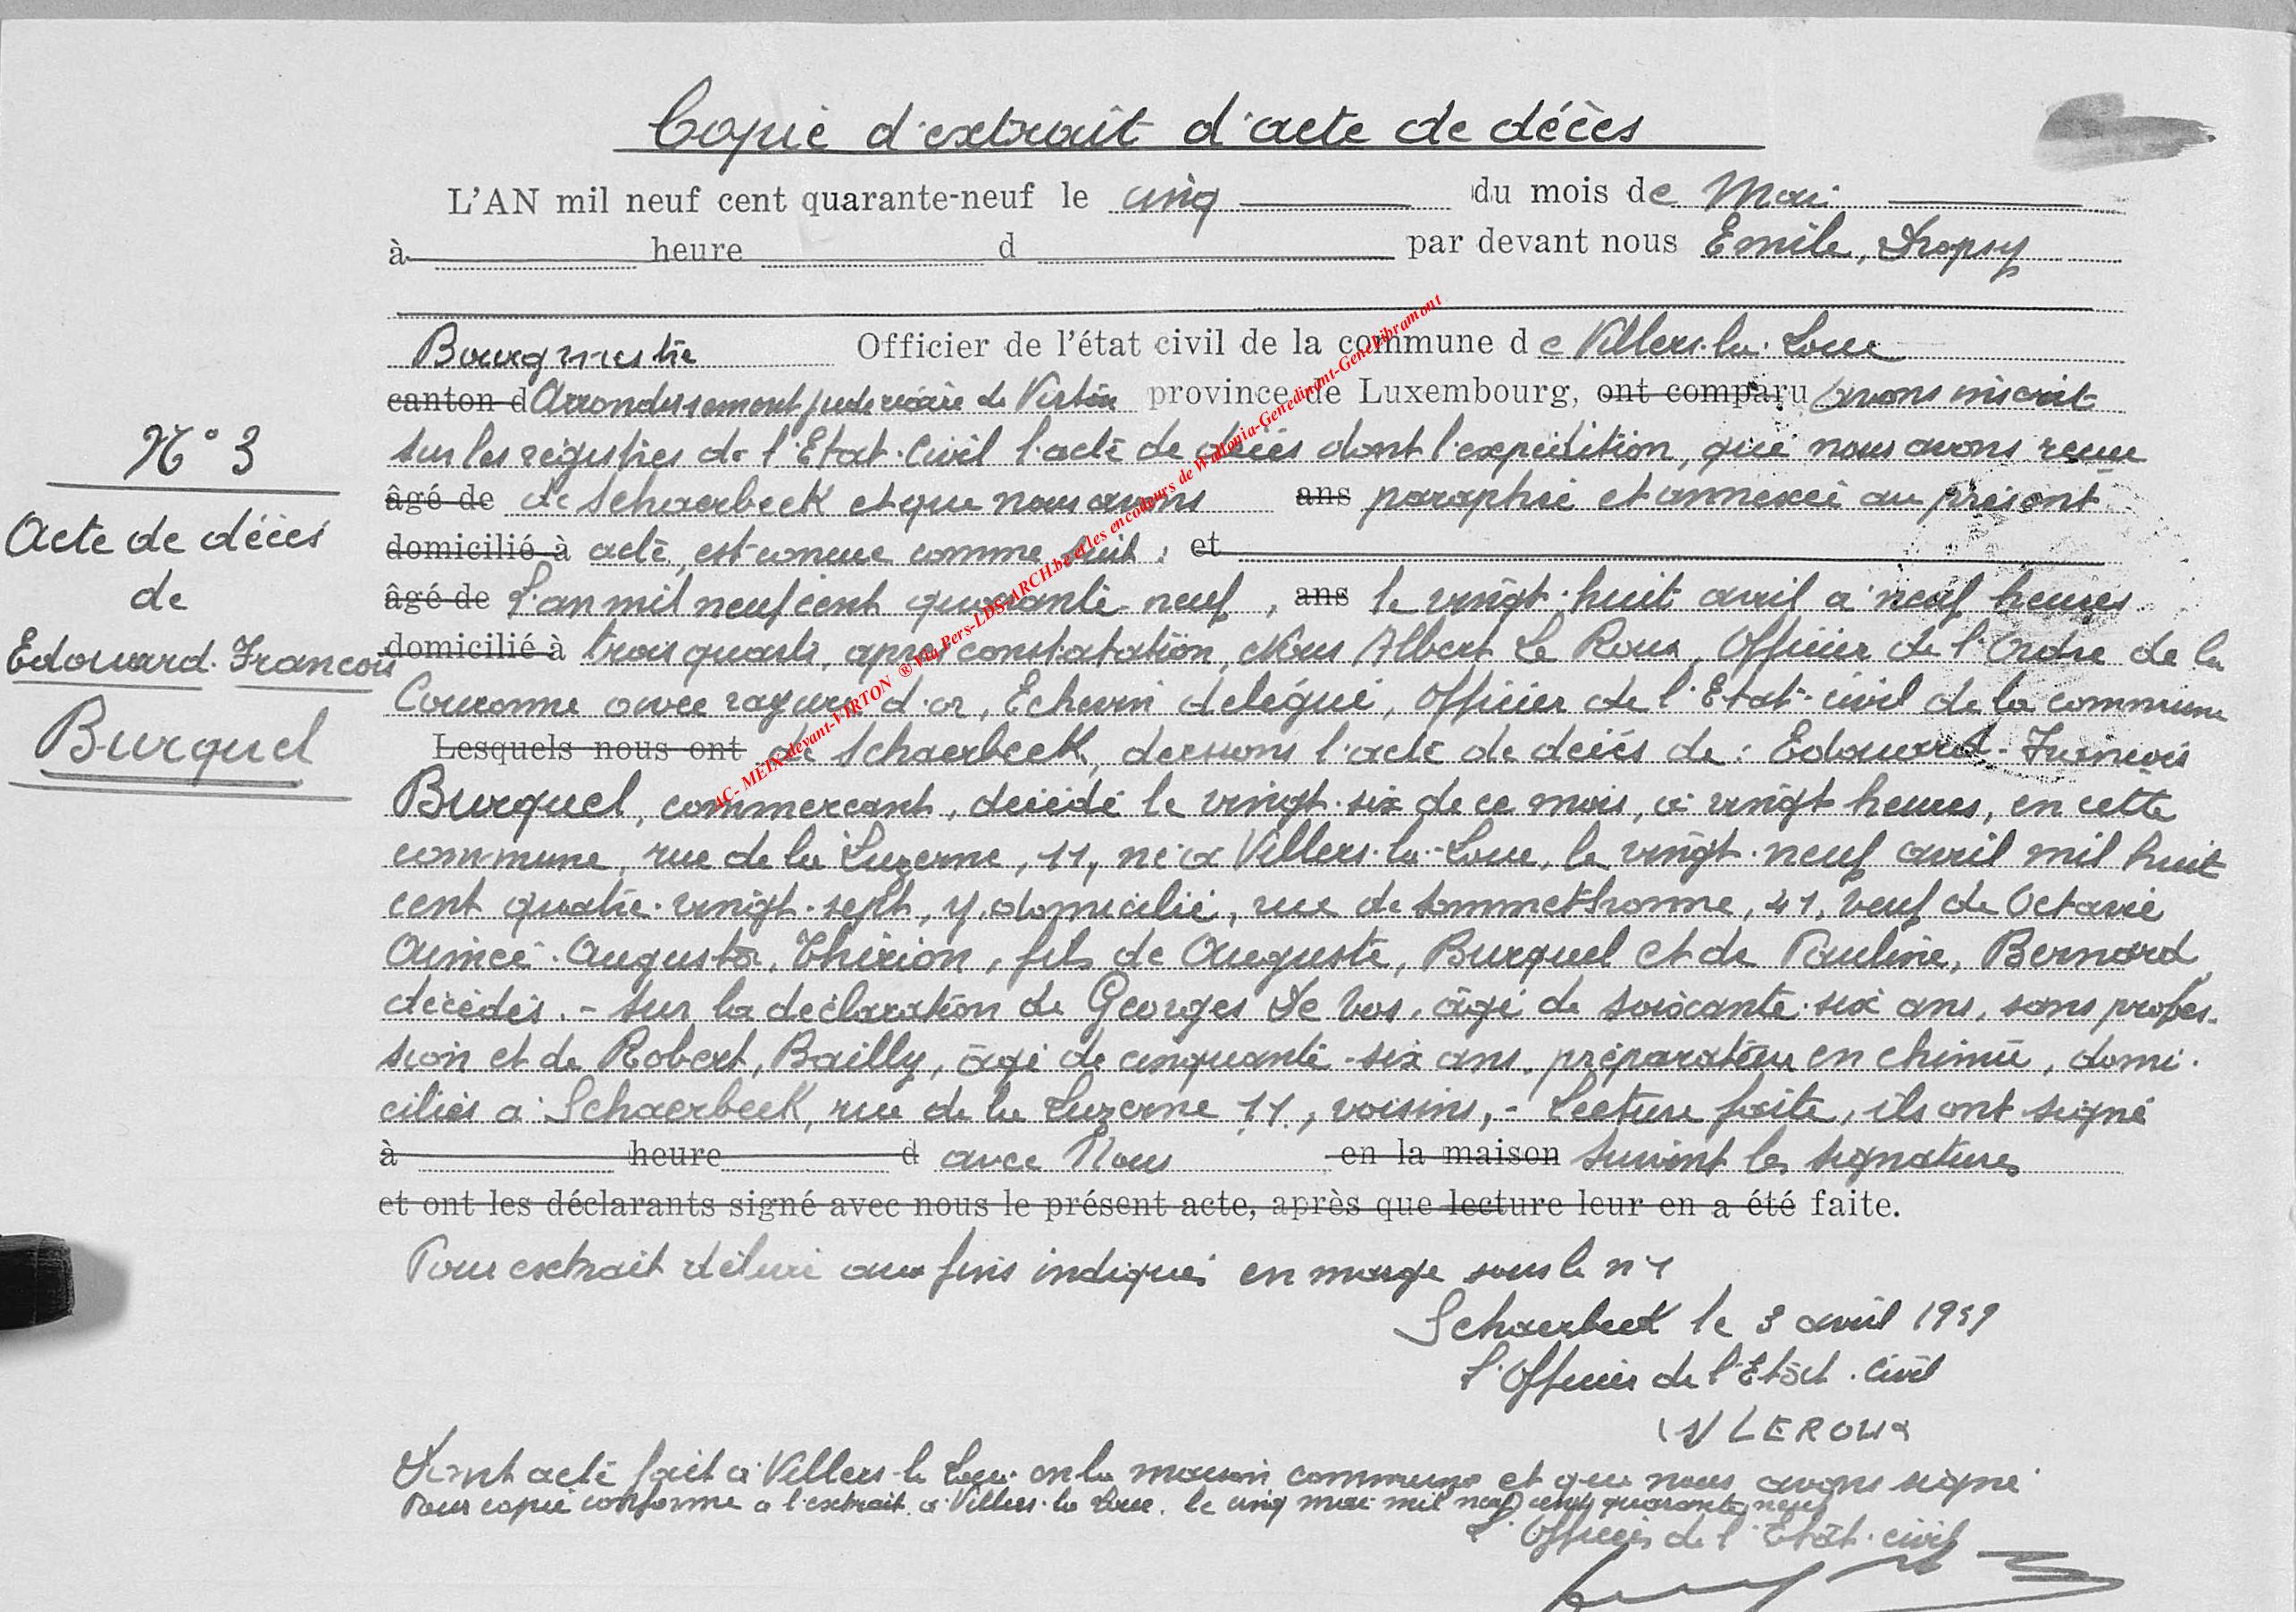 Copie d'extrait d'acte de décès
L'AN mil neuf cent quarante-neuf le cinq du mois de Mai
à heure d par devant nous Emile, Dropsy
Bourgmestre Officier de l'état civil de la commune de Villers-la-Loue
canton d Arrondissement judiciaire de Virton province de Luxembourg, ont comparu avons inscrit
sur les registres de l'Etat-Civil l'acte de décès dont l'expédition, que nous avons reçue
âgé de de Schaerbeek et que nous avons ans paraphée et annexée au présent
domicilié à acte, est conçue comme suit : et
âgé de L'an mil neuf cent quarante-neuf, ans le vingt-huit avril à neuf heures
domicilié à trois quarts, après constatation, Nous Albert Le Roux, Officier de l'Ordre de la
Couronne avec rayure d'or, Echevin délégué, Officier de l'Etat-civil de la commune
Lesquels nous ont de Schaerbeek, dressons l'acte de décès de : Edouard-François
Burquel, commerçant, décédé le vingt-six de ce mois, à vingt heures, en cette
commune, rue de la Luzerne, 11, né à Villers-la-Loue, le vingt-neuf avril mil huit
cent quatre-vingt-sept, y domicilié, rue de Sommethonne, 41, veuf de Octavie
Aimée-Augusta, Thirion, fils de Auguste, Burquel et de Pauline, Bernard,
décédés. - Sur la déclaration de Georges De Vos, âgé de soixante-six ans, sans profes-
sion et de Robert, Bailly, âgé de cinquante-six ans, préparateur en chimie, domi-
ciliés à Schaerbeek, rue de la Luzerne 11, voisins, - Lecture faite, ils ont signé
à heure d avec Nous en la maison Suivent les signatures
et ont les déclarants signé avec nous le présent acte, après que lecture leur en a été faite.
Pour extrait délivré aux fins indiqués en marge sous le n° 1
Schaerbeek le 3 avril 1949
L'Officier de l'Etat-Civil
(s) LEROUX
Dont acte fait à Villers-la-Loue en la maison communale et que nous avons signé
Pour copie conforme à l'extrait à Villers-la-Loue, le cinq mai mil neuf cent quarante neuf
L'Officier de l'Etat-civil
N° 3
Acte de décès
de
Edouard-François
Burquel
AC- MEIX-devant-VIRTON ® Via Pers-LDS-ARCH.be et les encodeurs de Wallonia-Genedinant-GeneLibramont